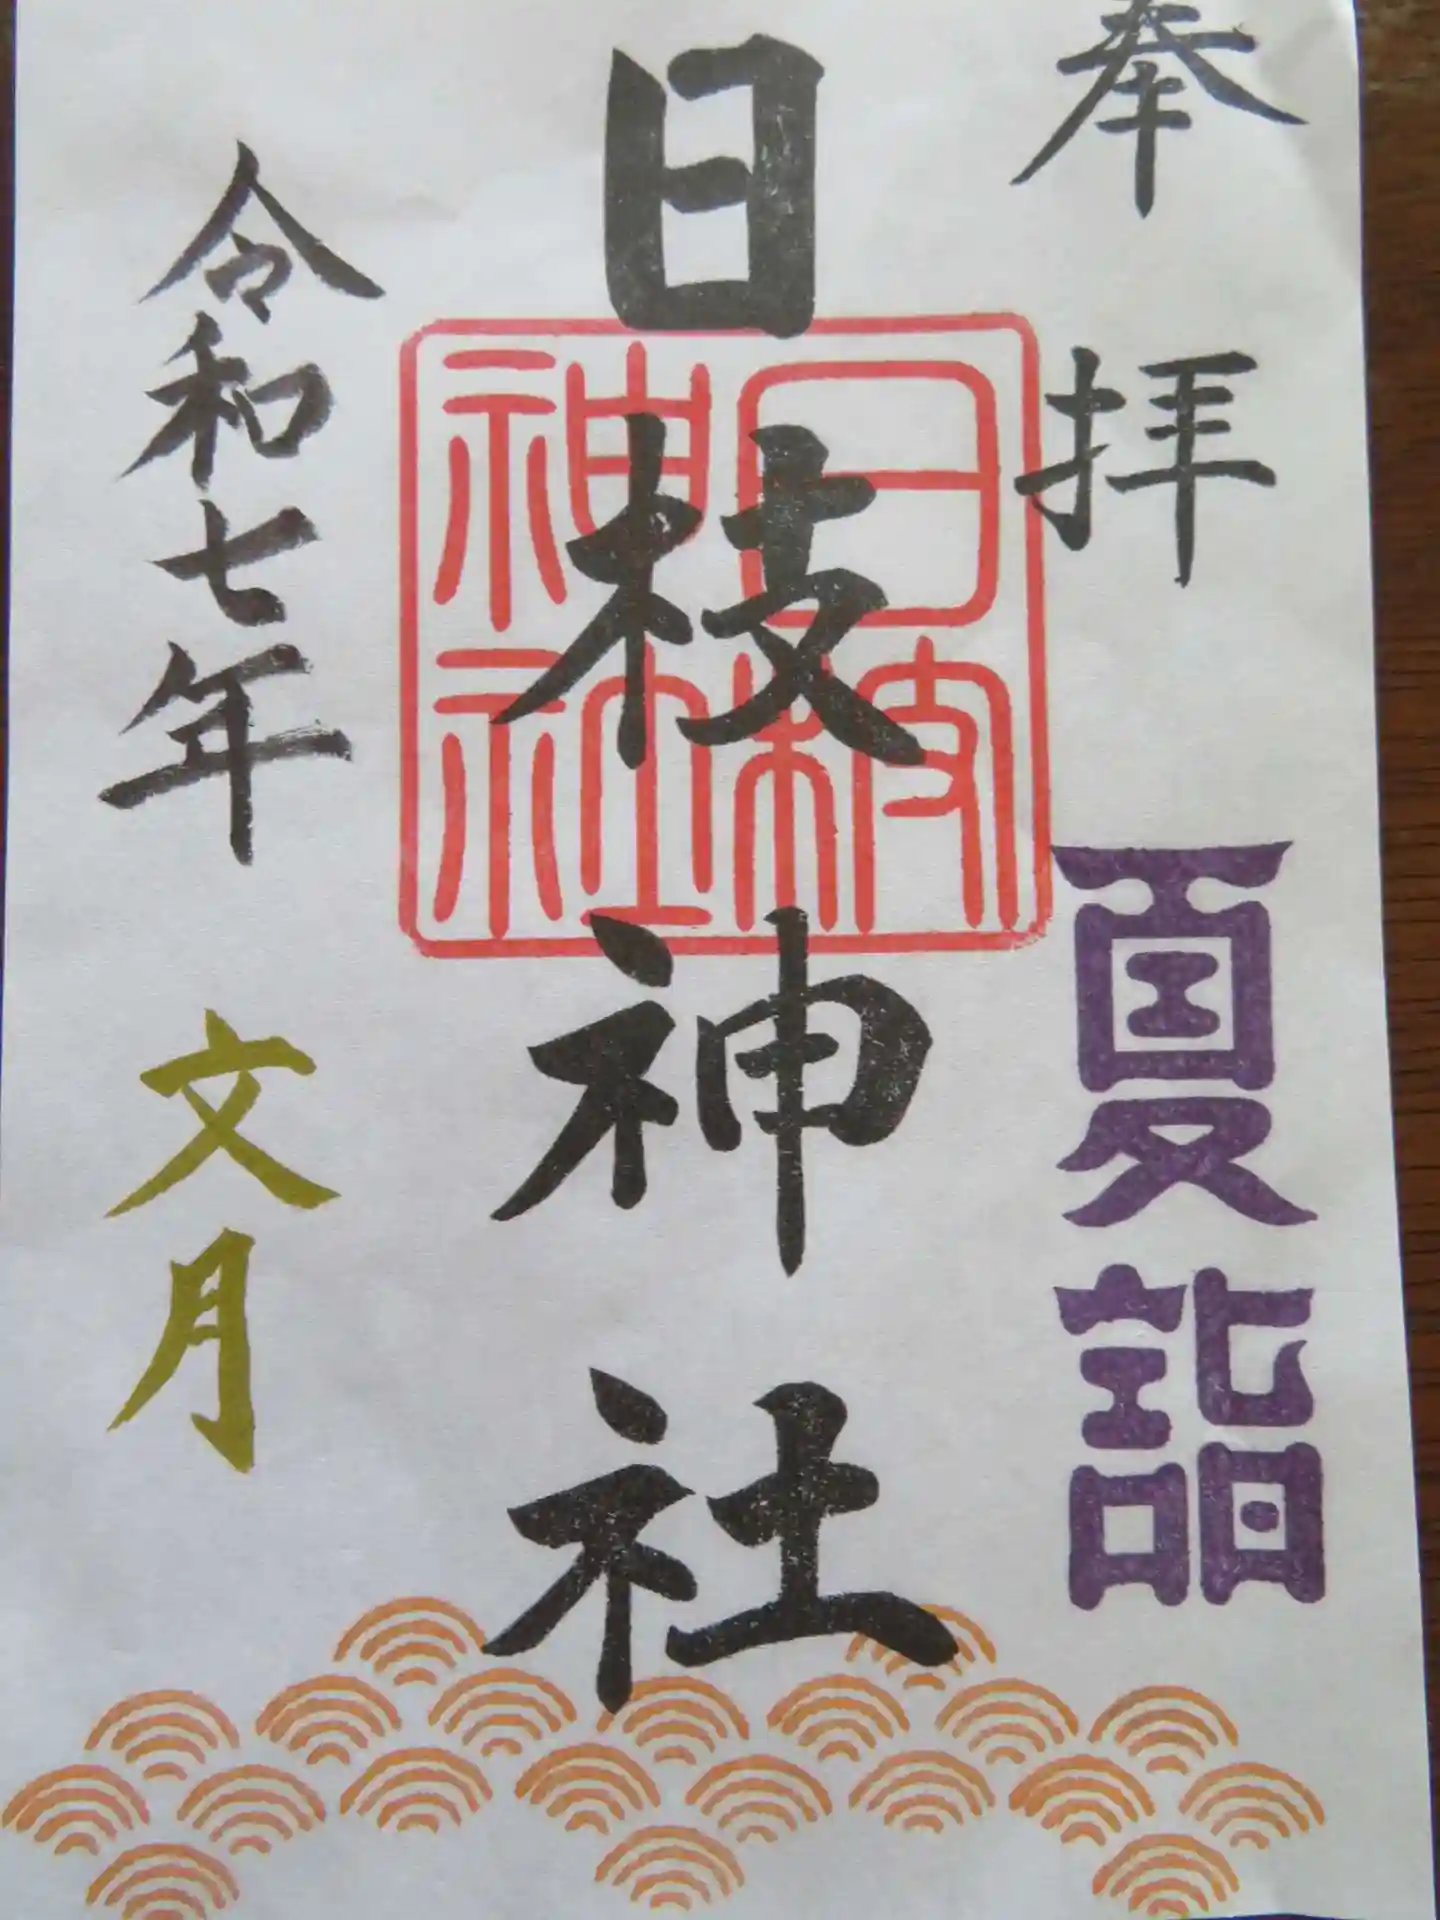 奉拝
夏詣
日枝神社
日枝
神社
令和七年
文月